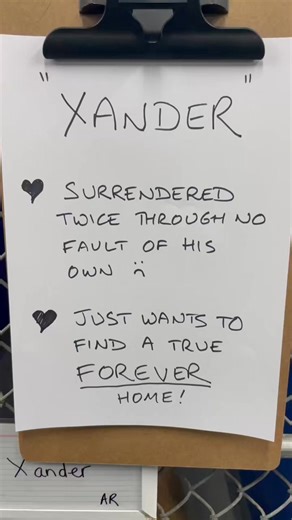 "XANDER"
♥ SURRENDERED
TWICE THROUGH NO
FAULT OF HIS
OWN :(
♥ JUST WANTS TO
FIND A TRUE
FOREVER
HOME!
Xander
AR